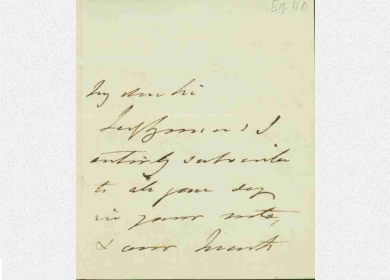 En. 40
My dear Sir
I
entirely subscribe
to all you say
in your note,
& am much